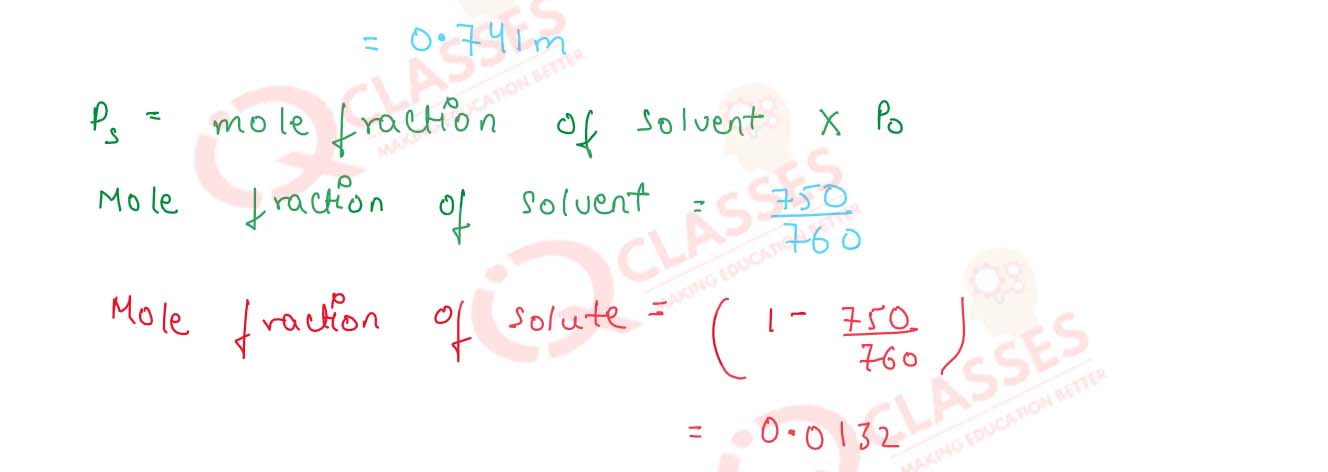 = 0.741m
Ps = mole fraction of solvent x Po
Mole fraction of solvent = 750/760
Mole fraction of solute = (1 - 750/760)
= 0.0132
CLASSES
MAKING EDUCATION BETTER
CLASSES
MAKING EDUCATION BETTER
CLASSES
MAKING EDUCATION BETTER